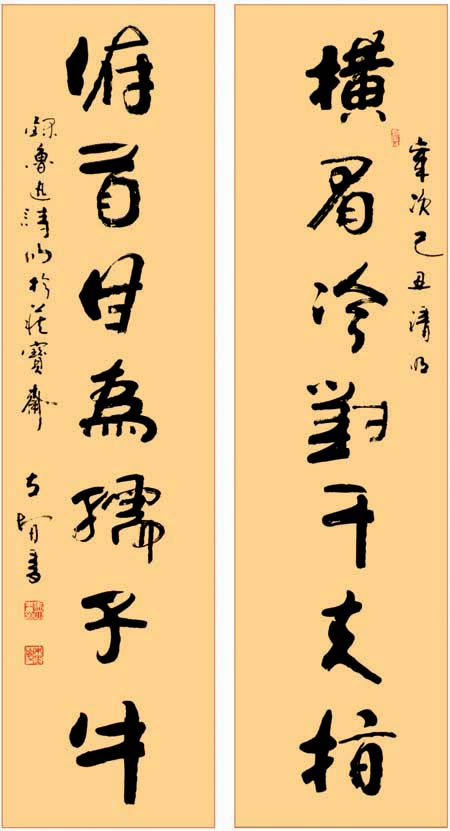 歲次己丑清明
橫眉冷對千夫指
俯首甘為孺子牛
錄魯迅詩於寶齋
書